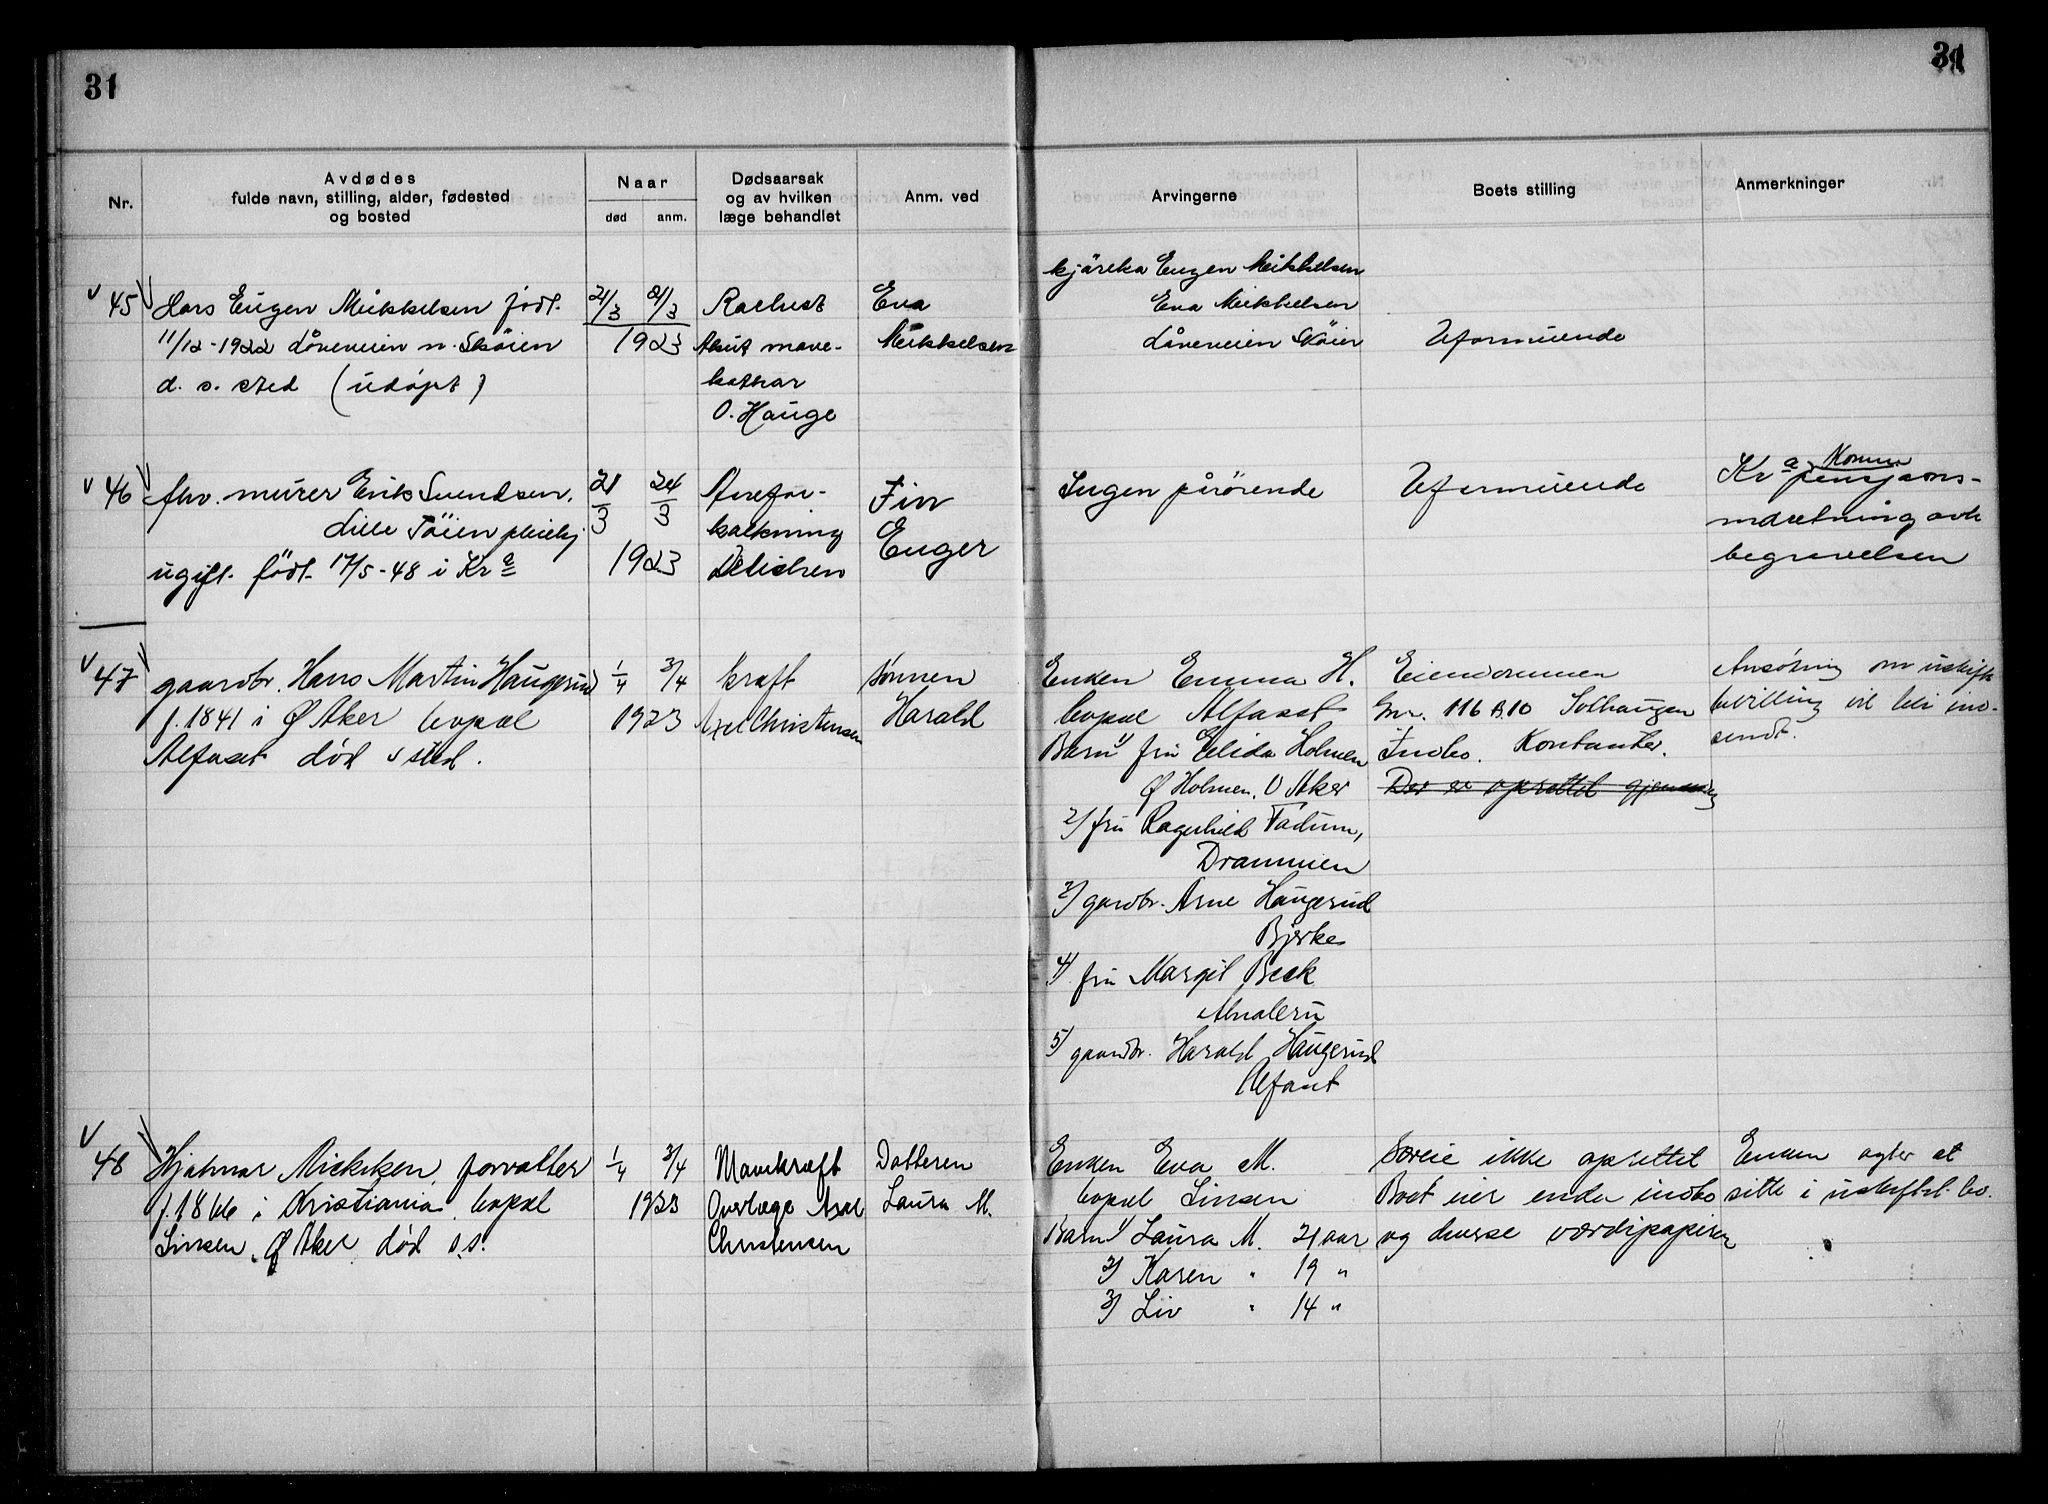 31
31
Nr.
Avdødes
fulde navn, stilling, alder, fødested
og bosted
Naar
død
anm.
Dødsaarsak
og av hvilken
læge behandlet
Anm. ved
Arvingerne
Boets stilling
Anmerkninger
45
Eugen Mikkelsen født.
11/12-1922 Løveveien n. Skøien
d. s. sted (udøpt)
21/3 21/3
1923
Akut mave-
kathar
O. Hauge
Eva
Mikkelsen
Eugen Mikkelsen
Eva Mikkelsen
Løveveien Skøien
Uformuende
46
fhv. murer Erik Svendsen,
Lille Tøien pleiehj
ugift. født. 17/5-48 i Kra
21/3 24/3
1923
Arefor-
kalkning
Fin
Enger
Ingen pårørende
Uformuende
Kra Komm
pensjons-
indretning
begravelsen
47
gaardbr. Hans Martin Haugerud
f. 1841 i Ø Aker bopæl
Alfaset død s sted.
1/4 3/4
1923
kræft
Axel Christensen
sønnen
Harald
Enken Emma H.
bopæl Alfaset
Barn 1/ fru Elida Holmen
Ø Holmen, Ø Aker
2/ fru Ragnhild Fadum,
Drammen
3/ gaardbr. Arne Haugerud
Bjerke
4/ fru Margit Beck
Alnabru
5/ gaardbr. Harald Haugerud
Alfaset
Eiendommen
Gnr. 116 B. 10 Solhaugen
Indbo. Kontanter.
Der er oprettet
Ansøkning om uskifte
bevilling vil bli ind-
sendt.
48
Hjalmar Micklsen, forvalter
f. 1866 i Kristiania bopæl
Linsen, Ø Aker, død s.s.
1/4 3/4
1923
Mavekræft
Overlæge Axel
Christensen
Datteren
Laura M.
Enken Eva M.
bopæl Linsen
Barn 1/ Laura M. 21 aar
2/ Karen " 19 "
3/ Liv " 14 "
Særeie ikke oprettet
Boet eier endel indbo
og diverse værdipapirer
Enken agter at
sitte i uskiftet bo.